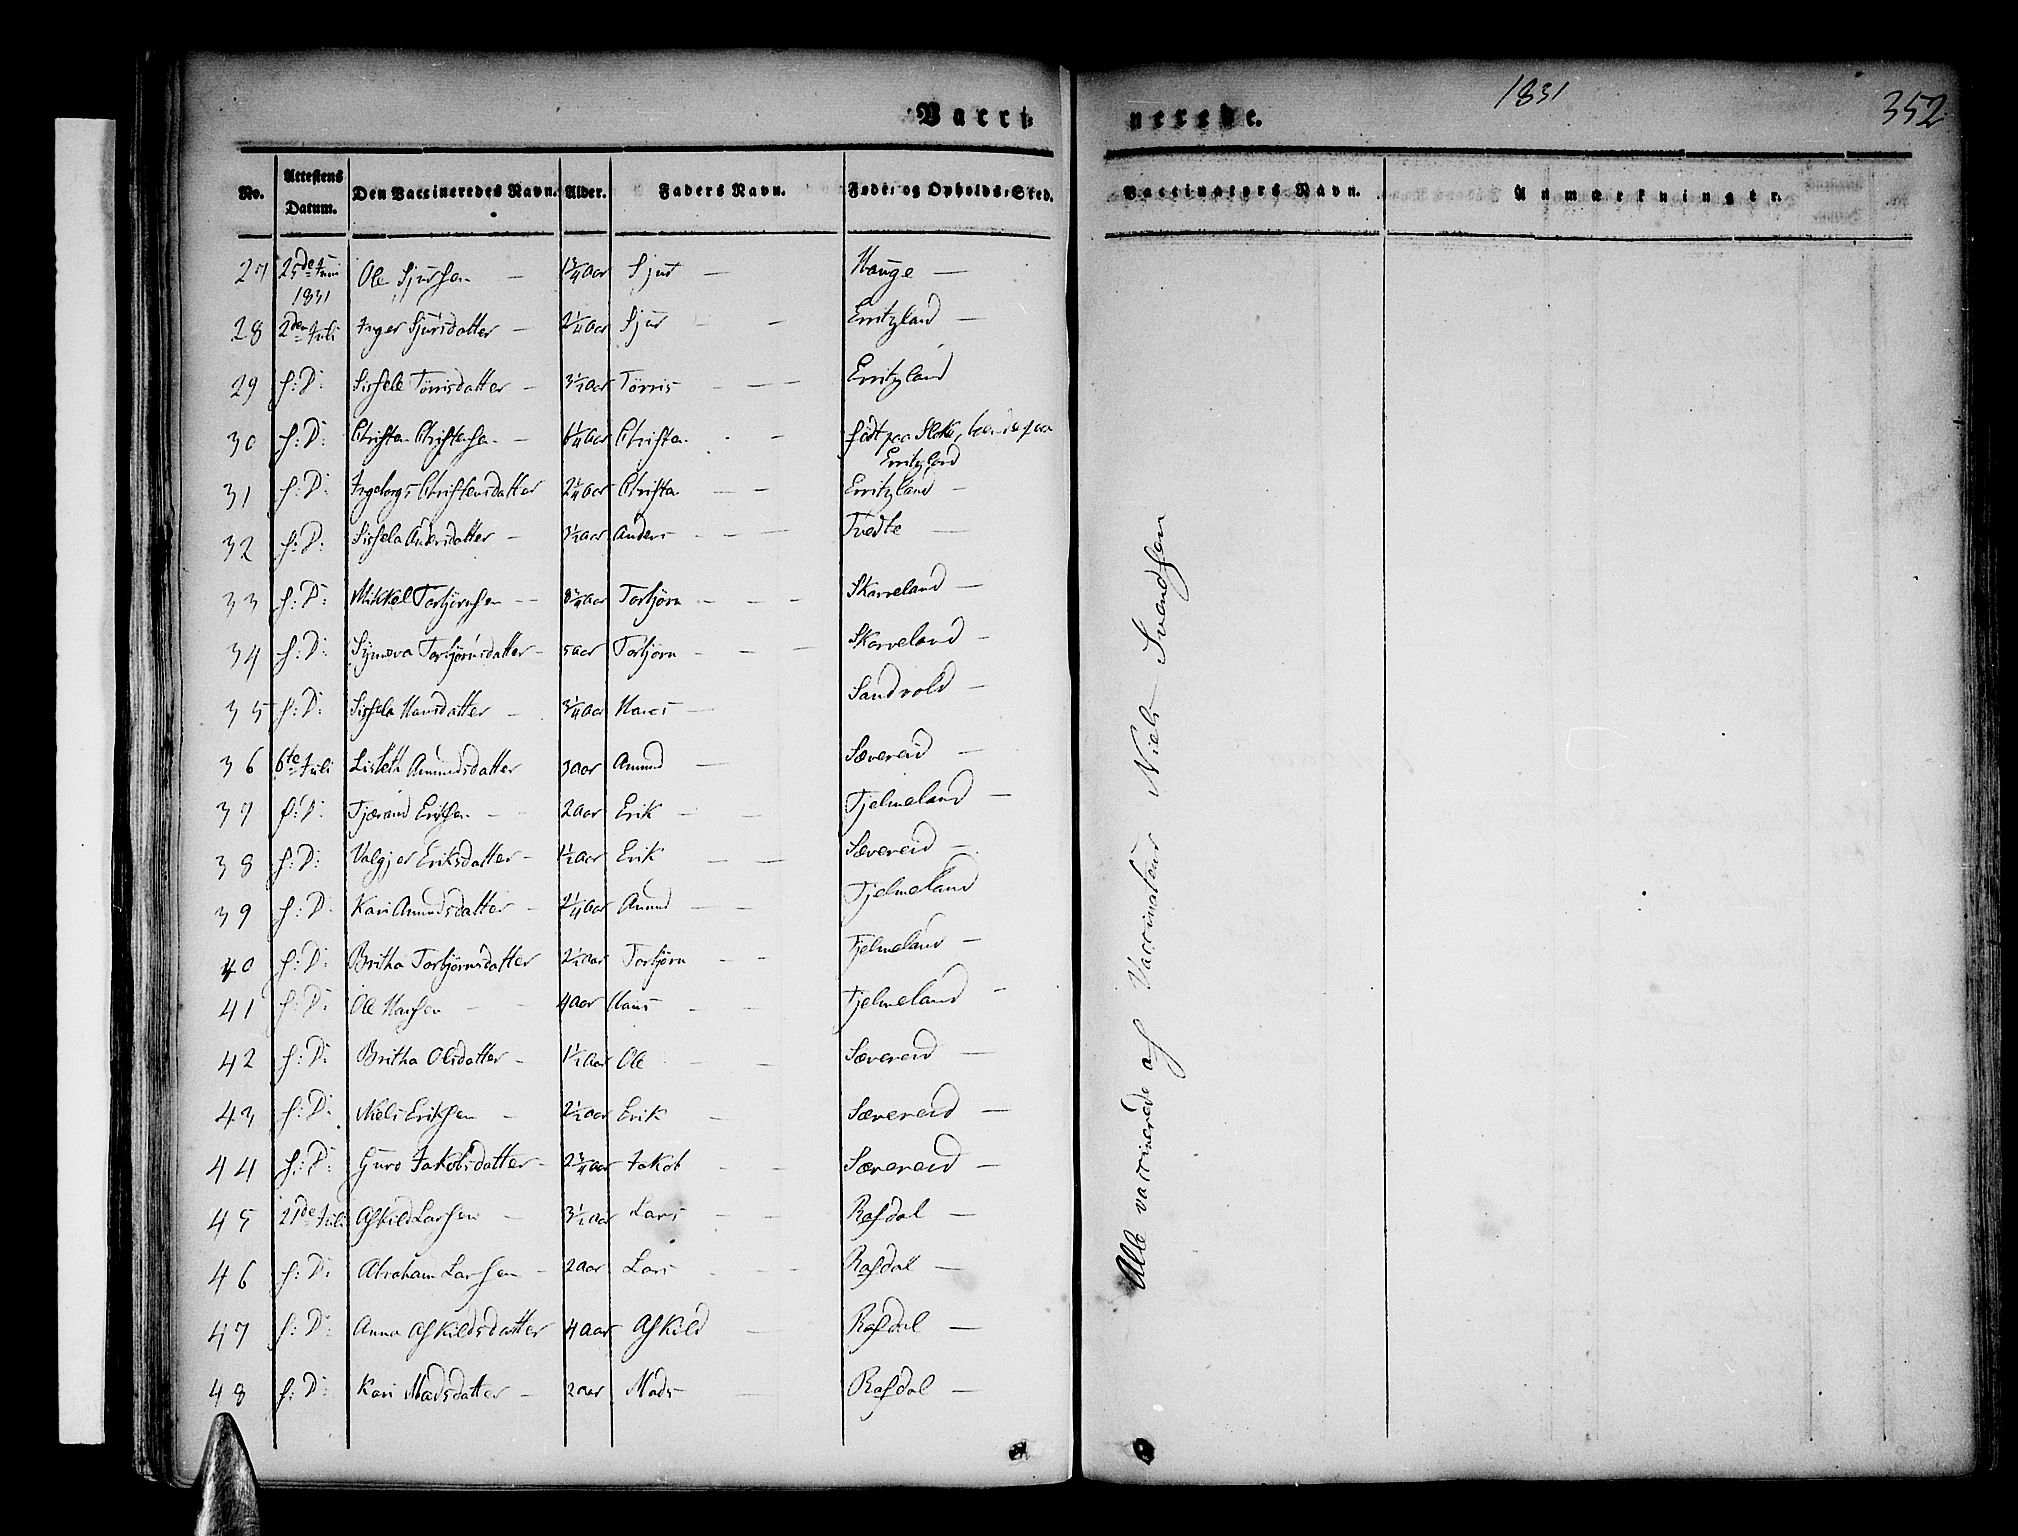 Vacci:
nerede.
1831
352
No. Attestens Datum. Den Vaccineredes Navn. Alder. Faders Navn. Føde: og Opholds:Sted. Vaccinateurs Navn. Anmærkninger.
27 25de Juni 1831 Ole Sjursen — 1 3/4 Aar Sjur — Hauge —
28 2den Juli Inger Sjursdatter — 2 1/4 Aar Sjur — — Erritzland —
29 s: D: Sissele Tørrisdatter — 3 1/2 Aar Tørris — — — Erritzland
30 s: D: Christen Christensen — 6 1/4 Aar Christen — — født paa boende paa
Erritzland
31 s: D: Ingeborg Christensdatter 2 1/4 Aar Christen — — Erritzland —
32 s: D: Sissela Andersdatter — 3 1/2 Aar Anders — — — Tvedte —
33 s: D: Mikkel Torbjørnsen — — 8 3/4 Aar Torbjørn — — — Skarveland —
34 s: D: Synneva Torbjørnsdatter — 5 Aar Torbjørn — — — Skarveland —
35 s: D: Sissela Hansdatter — 3 3/4 Aar Hans — Sandvold —
36 6te Juli Lisbeth Amundsdatter 3 Aar Amund — — Særereid —
37 s: D: Tjærand Eriksen — — 2 Aar Erik — — Tjelmeland —
38 s: D: Valgjer Eriksdatter — 1 1/2 Aar Erik — — Særereid —
39 s: D: Kari Amundsdatter — 2 1/4 Aar Amund — — Tjelmeland
40 s: D: Britha Torbjørnsdatter 2 1/2 Aar Torbjørn — — Tjelmeland —
41 s: D: Ole Hansen — — 4 Aar Hans — — Tjelmeland —
42 s: D: Britha Olsdatter — 1 1/2 Aar Ole — — Særereid —
43 s: D: Niels Eriksen — 2 1/2 Aar Erik — — Særereid —
44 s: D: Guro Jakobsdatter — 2 3/4 Aar Jakob — — Særereid —
45 21de Juli Askild Larsen — 3 1/2 Aar Lars — — Rafdal —
46 s: D: Abraham Larsen — 2 Aar Lars — — Rafdal —
47 s: D: Anna Askildsdatter 4 Aar Askild — Rafdal —
48 s: D: Kari Madsdatter — 2 Aar Mads — Rafdal —
Alle vaccinerede af Vaccinateur Niels Svendsen